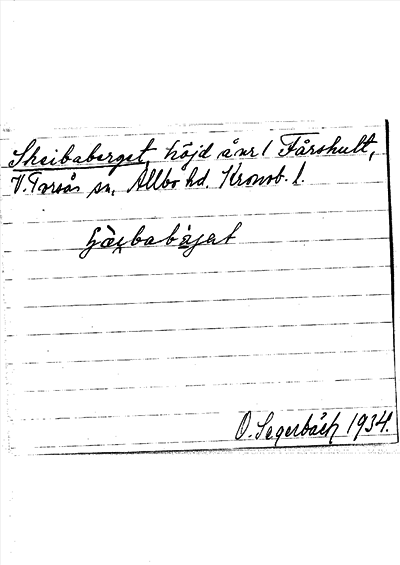 Skeibaberget, höjd å nr 1 Fårshult,
V. Torsås sn, Allbo hd. Kronob. l.
O. Segerbäck 1934.